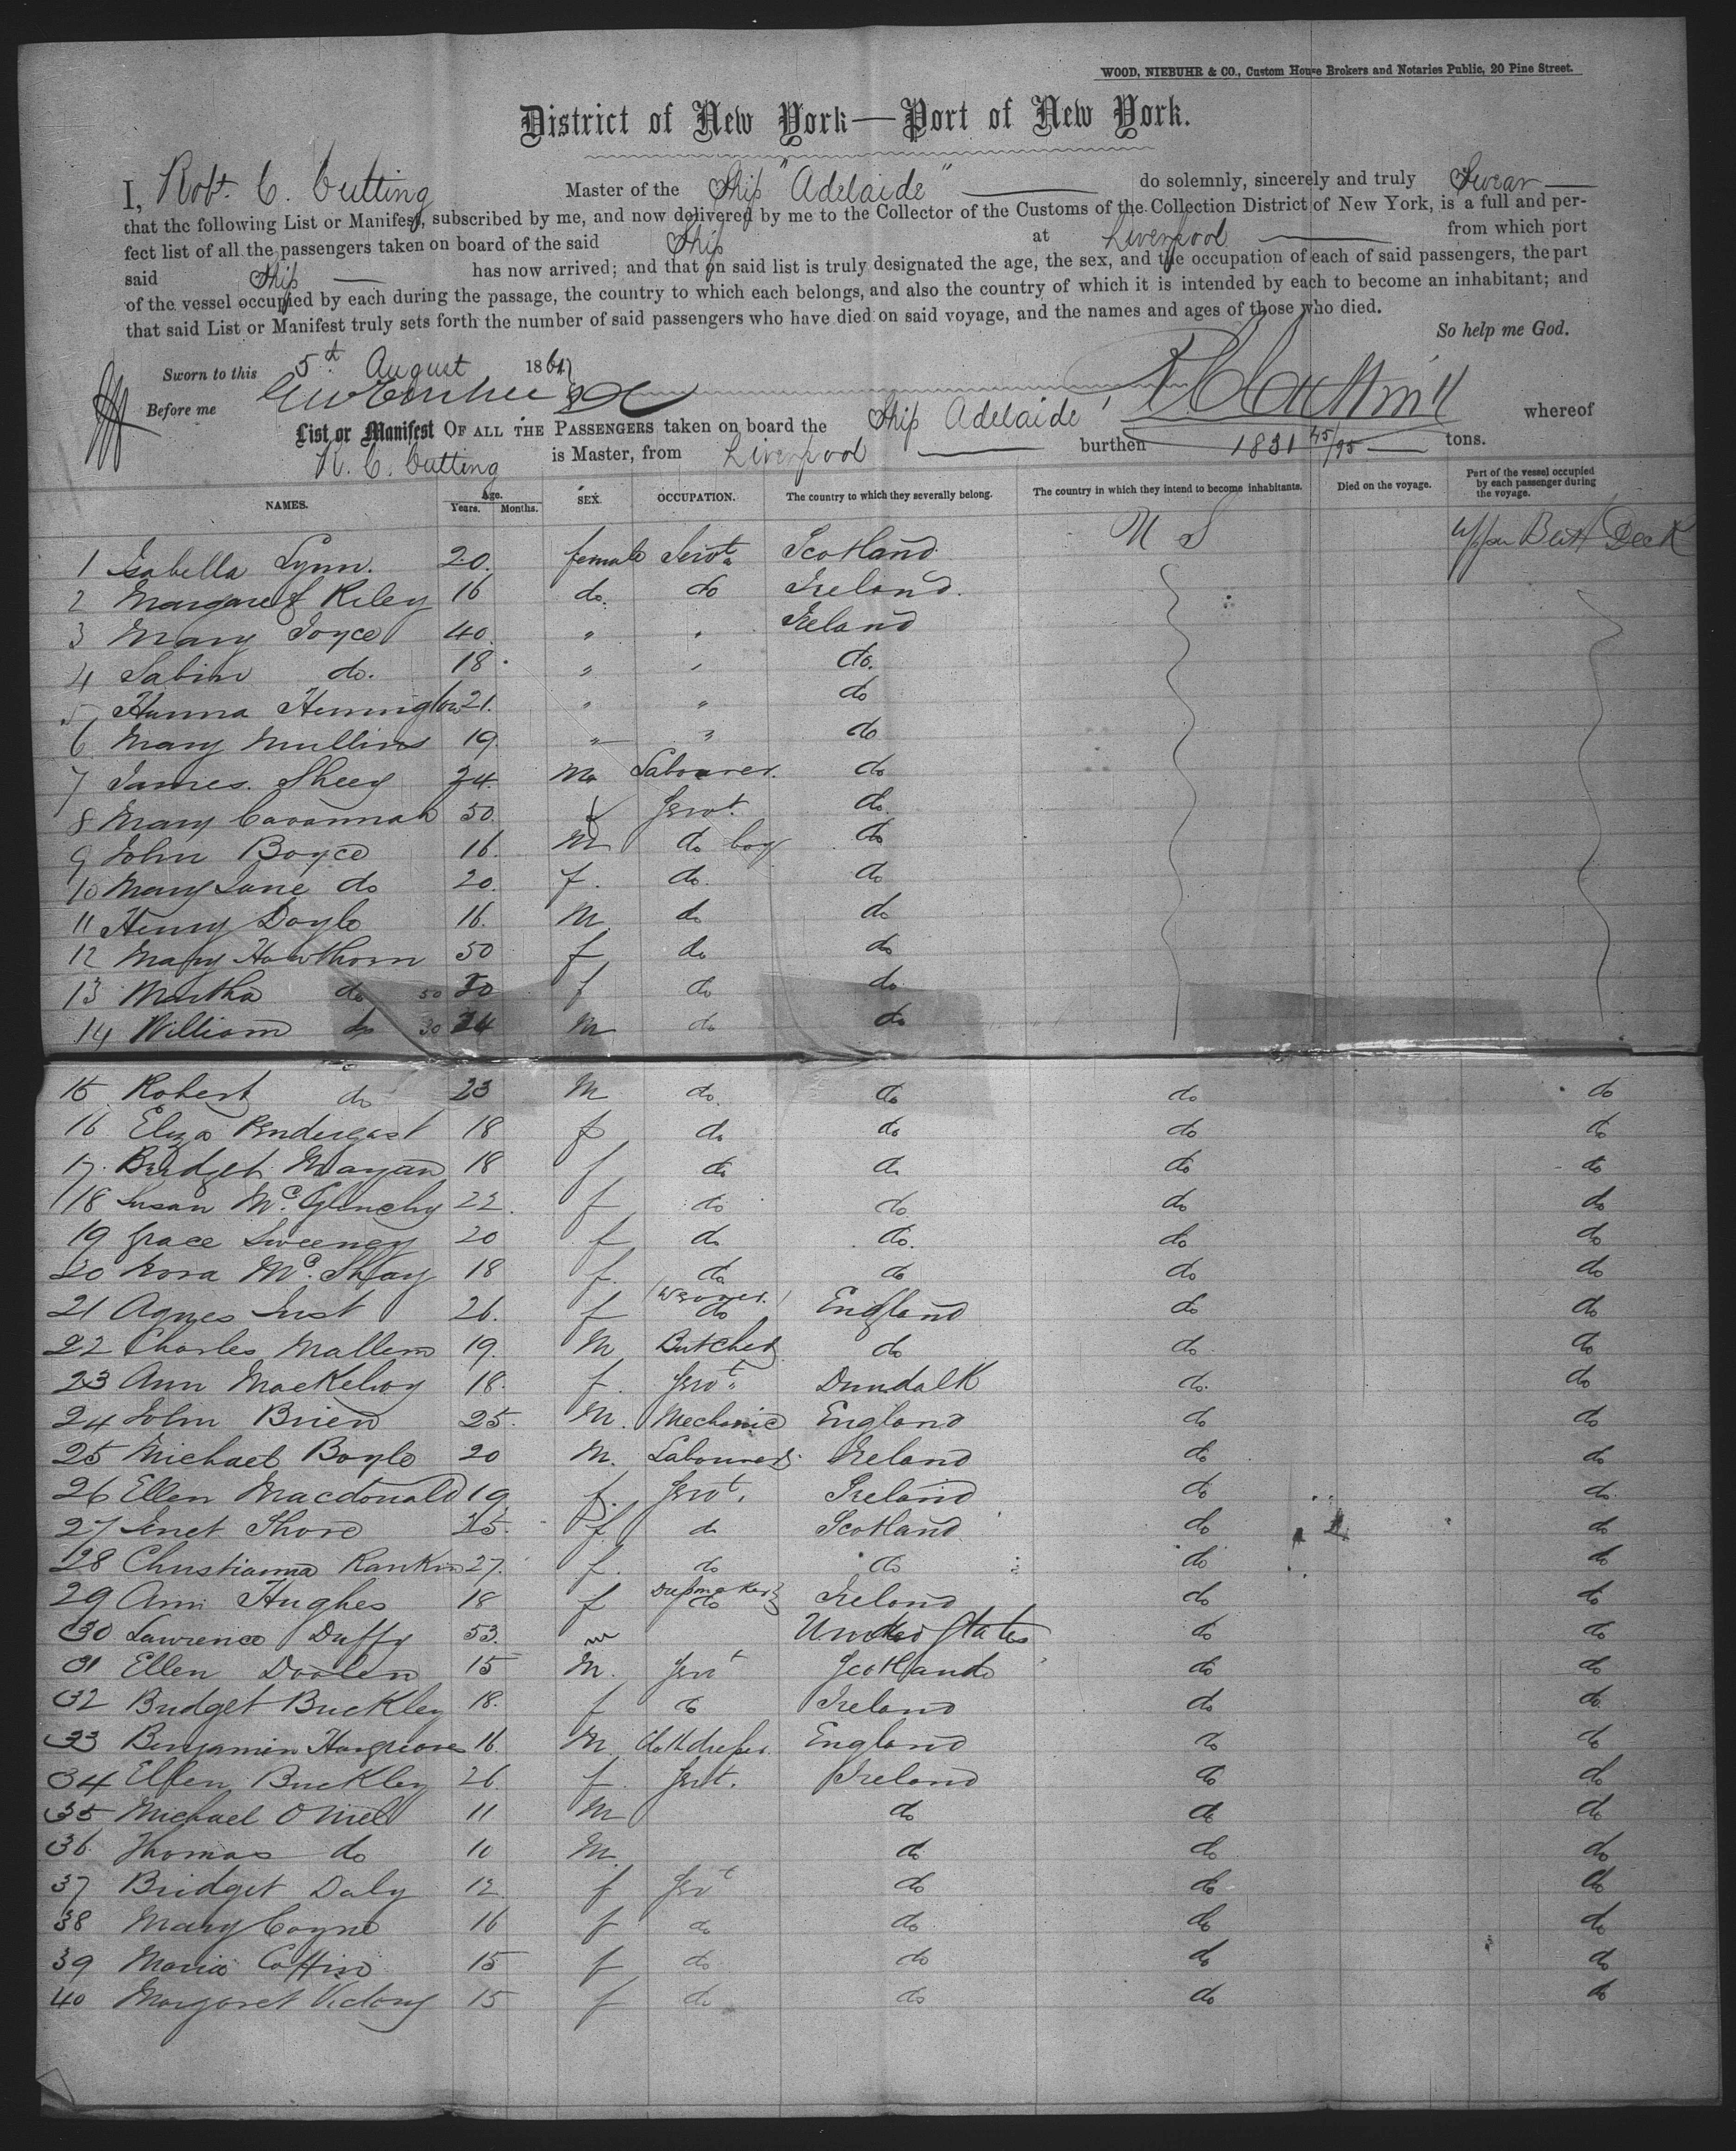 WOOD, NIEBUHR & CO., Custom House Brokers and Notaries Public, 20 Pine Street.
District of New York—Port of New York.
I, Robt. C. Cutting Master of the Ship "Adelaide" do solemnly, sincerely and truly Swear
that the following List or Manifest, subscribed by me, and now delivered by me to the Collector of the Customs of the Collection District of New York, is a full and per-
fect list of all the passengers taken on board of the said Ship at Liverpool from which port
said Ship has now arrived; and that on said list is truly designated the age, the sex, and the occupation of each of said passengers, the part
of the vessel occupied by each during the passage, the country to which each belongs, and also the country of which it is intended by each to become an inhabitant; and
that said List or Manifest truly sets forth the number of said passengers who have died on said voyage, and the names and ages of those who died.
So help me God.
Sworn to this 5th August 186
Before me
List or Manifest OF ALL THE PASSENGERS taken on board the Ship Adelaide whereof
R. C. Cutting is Master, from Liverpool burthen 1831 45/95 tons.
NAMES. Age. Years. Months. SEX. OCCUPATION. The country to which they severally belong. The country in which they intend to become inhabitants. Died on the voyage. Part of the vessel occupied by each passenger during the voyage.
1 Isabella Lynn. 20. female Servt. Scotland U S Upper Deck
2 Margaret Riley 16 do. do Ireland.
3 Mary Joyce 40. " " Ireland
4 Sabin do. 18 " " do.
5 Hanna 21. " " do
6 Mary Mullins 19. " " do
7 James. Sheey 24. M Labourer. do
8 Mary Cavannah 50. f Servt. do.
9 John Boyce 16. M do boy do
10 Mary Jane do 20. f. do. do
11 Henry Doyle 16. M. do do
12 Mary Hawthorn 50 f do do
13 Martha do 50 f do do
14 William do 30 M do do
15 Robert do 23 M do. do do do
16 Eliza Pendergast 18 f do do do do
17. Bridget 18 f do do do do
18 Susan McGlinchy 22. f do do do do
19 Grace Sweeney 20 f do do. do do
20 McShay 18 f. do do do do
21 Agnes 26. f (Weaver.) do England do do
22 Charles 19. M Butcher do do. do
23 Ann Mackelvoy 18. f. Servt. Dundalk do. do
24 John Brien 25. M. Mechanic England do do
25 Michael Boyle 20 M. Labourer Ireland do do
26 Ellen Macdonald 19 f. Servt. Ireland do do.
27 Shore f. do Scotland do do
28 Christianna Rankin 27. f. do do do do
29 Ann Hughes 18 f Dressmaker do Ireland do do
30 Lawrence Duffy 53. m United States do do
31 Ellen Doolen 15 M. Servt Scotland do do
32 Bridget Buckley 18. f do Ireland do do
33 Benjamin Hargreaves 16. M Clothdresser. England do do
34 Ellen Buckley 26. f. Servt. Ireland do do
35 Michael O'Niel 11 M do do do
36 Thomas do 10 M. do do do
37 Bridget Daly 12. f Servt do do do
38 Mary Coyne 16 f do do do do
39 Maria 15 f do do do do
40 Margaret Victory 15 f do do do do